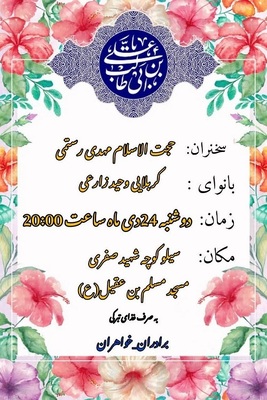 علی بن ابی طالب
سخنران: حجت الاسلام مهدی رستمی
بانوای : کربلایی وحید زارعی
زمان: دوشنبه 24دی ماه ساعت 20:00
مکان: سیلو کوچه شهید صفری
مسجد مسلم بن عقیل(ع)
به صرف غذای تبرکی
برادران_خواهران